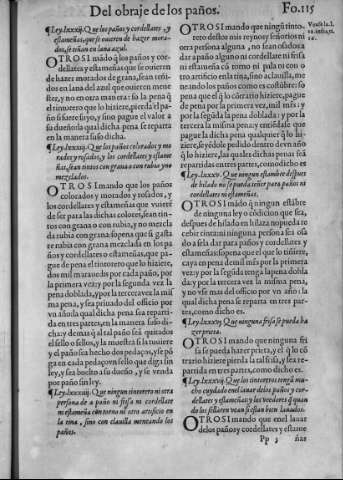 Del obraje de los paños.
Fo.115
¶Ley.lxxxij. Que los paños y cordellates, y
estameñas, que se ouieren de hazer mora-
dos, se tiñan en lana azul.
OTROSI mãdo q̃ los paños y cor-
dellates y estameñas que se ouieren
de hazer morados de grana, sean teñi-
dos en lana del azul que ouieren mene-
ster, y no en otra manera: so la pena q̃
el tintorero que lo hiziere, pierda el pa-
ño si fuere suyo, y sino pague el valor a
su dueño: la qual dicha pena se reparta
en la manera suso dicha.
¶Ley.lxxxiij. Que los paños colorados y mo-
rados y rosados, y los cordellates y estame-
ñas, sean tintos con grana o con rubia y no
mezclados.
OTROSI mando que los paños
colorados y morados y rosados, y
los cordellates y estameñas que ouiere
de ser para las dichas colores, sean tin-
tos con grana o con rubia, y no mezcla
da rubia con grana: so pena que si gasta
re rubia con grana mezclada en los pa-
ños y cordellates o estameñas, que pa-
gue de pena el tintorero que lo hiziere,
dos mil marauedis por cada paño, por
la primera vez: y por la segunda vez la
pena doblada, y por la tercera vez la mis
ma pena, y sea priuado del officio por
vn año: la qual dicha pena sea reparti-
da en tres partes, en la manera suso di-
cha: y demas q̃ al tal paño sea quitados
el sello o sellos, y la muestra si la tuuiere
y el paño sea hecho dos pedaços, y se põ
ga en cada pedaço vn sello que diga sin
ley, y sea buelto a su dueño, y se venda
por paño sin ley.
¶Ley.lxxxiiij. Que ningun tintorero ni otra
persona de a paño ni frisa ni cordellate
ni estameña con torno ni otro artificio en
la tina, sino con clauilla meneando los
paños.
OTROSI mando que ningũ tinto-
rero destos mis reynos y señorios ni
otra persona alguna, no sean osados a
dar a paño alguno ni cordellate ni frisa
ni estameña cõ torno ni pala ni con o-
tro artificio en la tina, sino a clauilla, me
neando los paños como es costũbre: so
pena que el q̃ lo cõtrario hiziere, pague
de pena por la primera vez, mil mrs: y
por la segũda la pena doblada: y por la
tercera la misma pena: y entiẽdase que
pague la dicha pena qualquier q̃ lo hi-
ziere, seyẽdole pedido dentro devn año
q̃ lo hiziere, las quales dichas penas seã
repartidas en tres partes, como dicho es
¶Ley.lxxxv. Que ningun estambre despues
de hilado no se pueda teñir para paños ni
cordellates ni estameñas.
OTROSI mãdo q̃ ningun estãbre
de ninguna ley o cõdicion que sea,
despues de hilado en hilaza no pueda re
cebir tintani ninguna persona sea osa
do a la dar para paños y cordellates y
estameñas: so pena que el que lo tiñere,
caya en pena de mil mrs por la primera
vez; y por la segũda tenga la pena dobla
da: y por la tercera vez la misma pena,
y no vse mas del officio por vn año: la
qual dicha pena se reparta en tres par-
tes, como dicho es.
¶Ley.lxxxvj. Que ninguna frisa se pueda ha
zer prieta.
OTROSI mando que ninguna frisa
se pueda hazer prieta, y el q̃ lo cõ
trario hiziere pierda la tal frisa, y sea re
partida en tres partes, como dicho es.
¶Ley.lxxxvij. Que los tintoreros tengã mu-
cho cuydado en el lauar de los paños y cor-
dellates y estameñas: y los veedores q̃ quan
do los sellaren vean si estan bien lauados.
OTROSI mando que enel lauar
delos paños y cordellates y estame
Pp 3 ñas